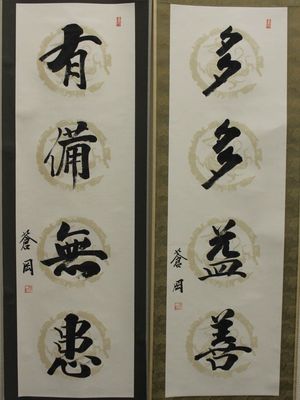 多多益善
蒼岡
有備無患
蒼岡